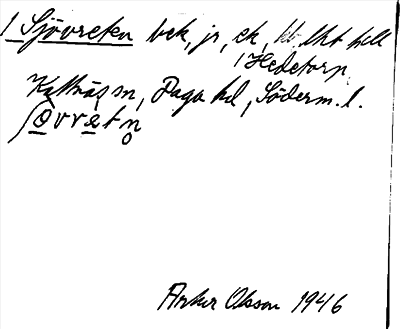 1 Sjövreten bek, jr, ek, tt. lht till
Hedetorp
Kattnäs sn, Daga hd, Söderm. l.
ʃövretn̥
Arthur Olsson 1946